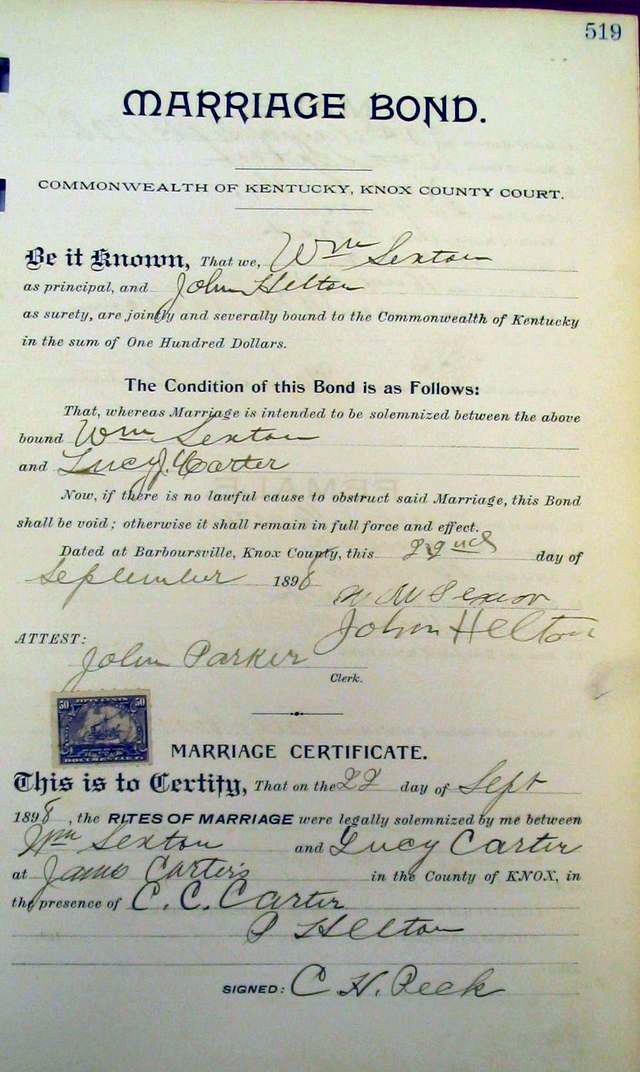 519
MARRIAGE BOND.
COMMONWEALTH OF KENTUCKY, KNOX COUNTY COURT.
Be it Known, That we, Wm Sexton
as principal, and John Helton
as surety, are jointly and severally bound to the Commonwealth of Kentucky
in the sum of One Hundred Dollars.
The Condition of this Bond is as Follows:
That, whereas Marriage is intended to be solemnized between the above
bound Wm Sexton
and Lucy J. Carter
Now, if there is no lawful cause to obstruct said Marriage, this Bond
shall be void; otherwise it shall remain in full force and effect.
Dated at Barboursville, Knox County, this 22nd day of
September 1898
Sexton
John Helton
ATTEST:
John Parker
Clerk.
FIFTY CENTS
50 50
DOCUMENTARY
MARRIAGE CERTIFICATE.
This is to Certify, That on the 22 day of Sept
1898, the RITES OF MARRIAGE were legally solemnized by me between
Wm Sexton and Lucy Carter
at Carter's in the County of KNOX, in
the presence of C. C. Carter
P Helton
SIGNED: C H. Peek